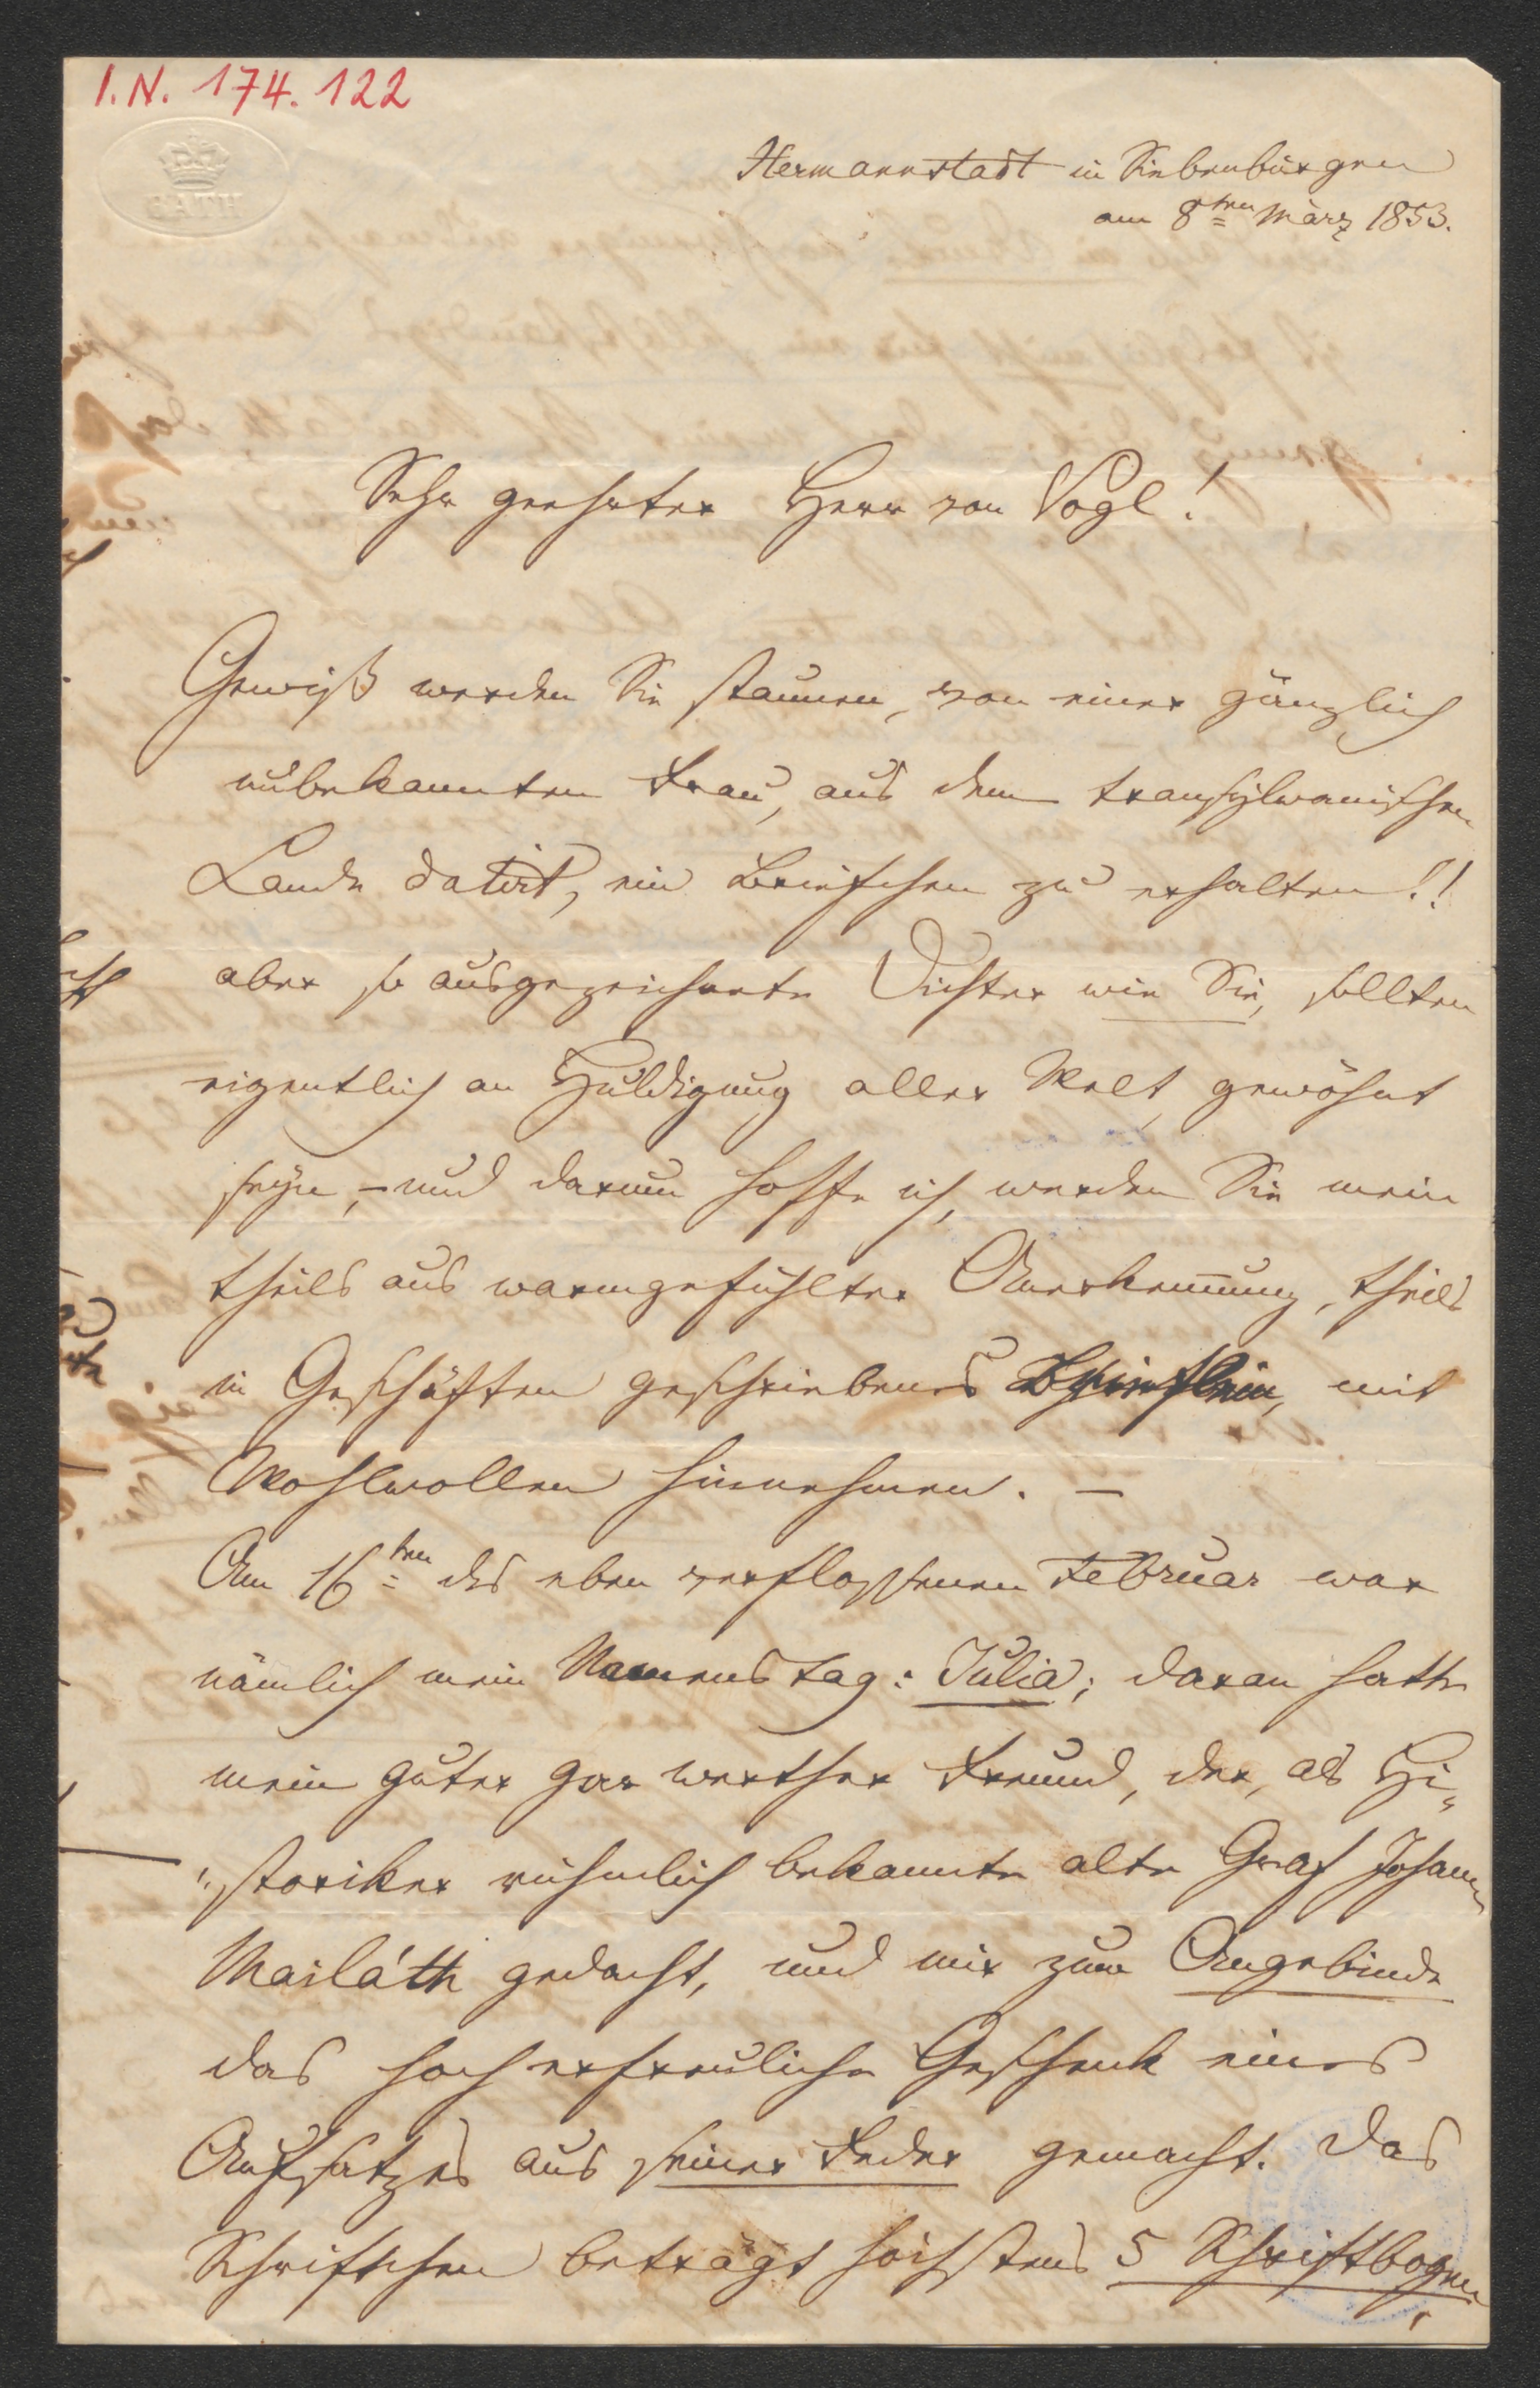 I.N. 174.122
BATH
Hermannstadt in Siebenbürgen
am 8ten März 1853.
Sehr geehrter Herr von Vogl!
Gewiß werden Sie staunen, von einer gänzlich
unbekannten Frau, aus dem transylvanischen
Lande datirt, ein Briefchen zu erhalten!!
aber so ausgezeichnete Dichter wie Sie, sollten
eigentlich an Huldigung aller Welt gewöhnt
seyn, – und darum hoffe ich, werden Sie mein
theils aus warmgefühlter Anerkennung, theils
in Geschäften geschriebenes Brieflein, mit
Wohlwollen hinnehmen. –
Am 16ten des eben verflossenen Februar war
nämlich mein Namenstag: Julia; daran hatte
mein guter gar werther Freund, der, als Hi„
„storiker rühmlich bekannte alte Graf Johann
Mailáth gedacht, und mir zum Angebinde
das hocherfreuliche Geschenk eines
Aufsatzes aus seiner Feder gemacht. Das
Schriftchen beträgt höchstens 5 Schriftbogen,